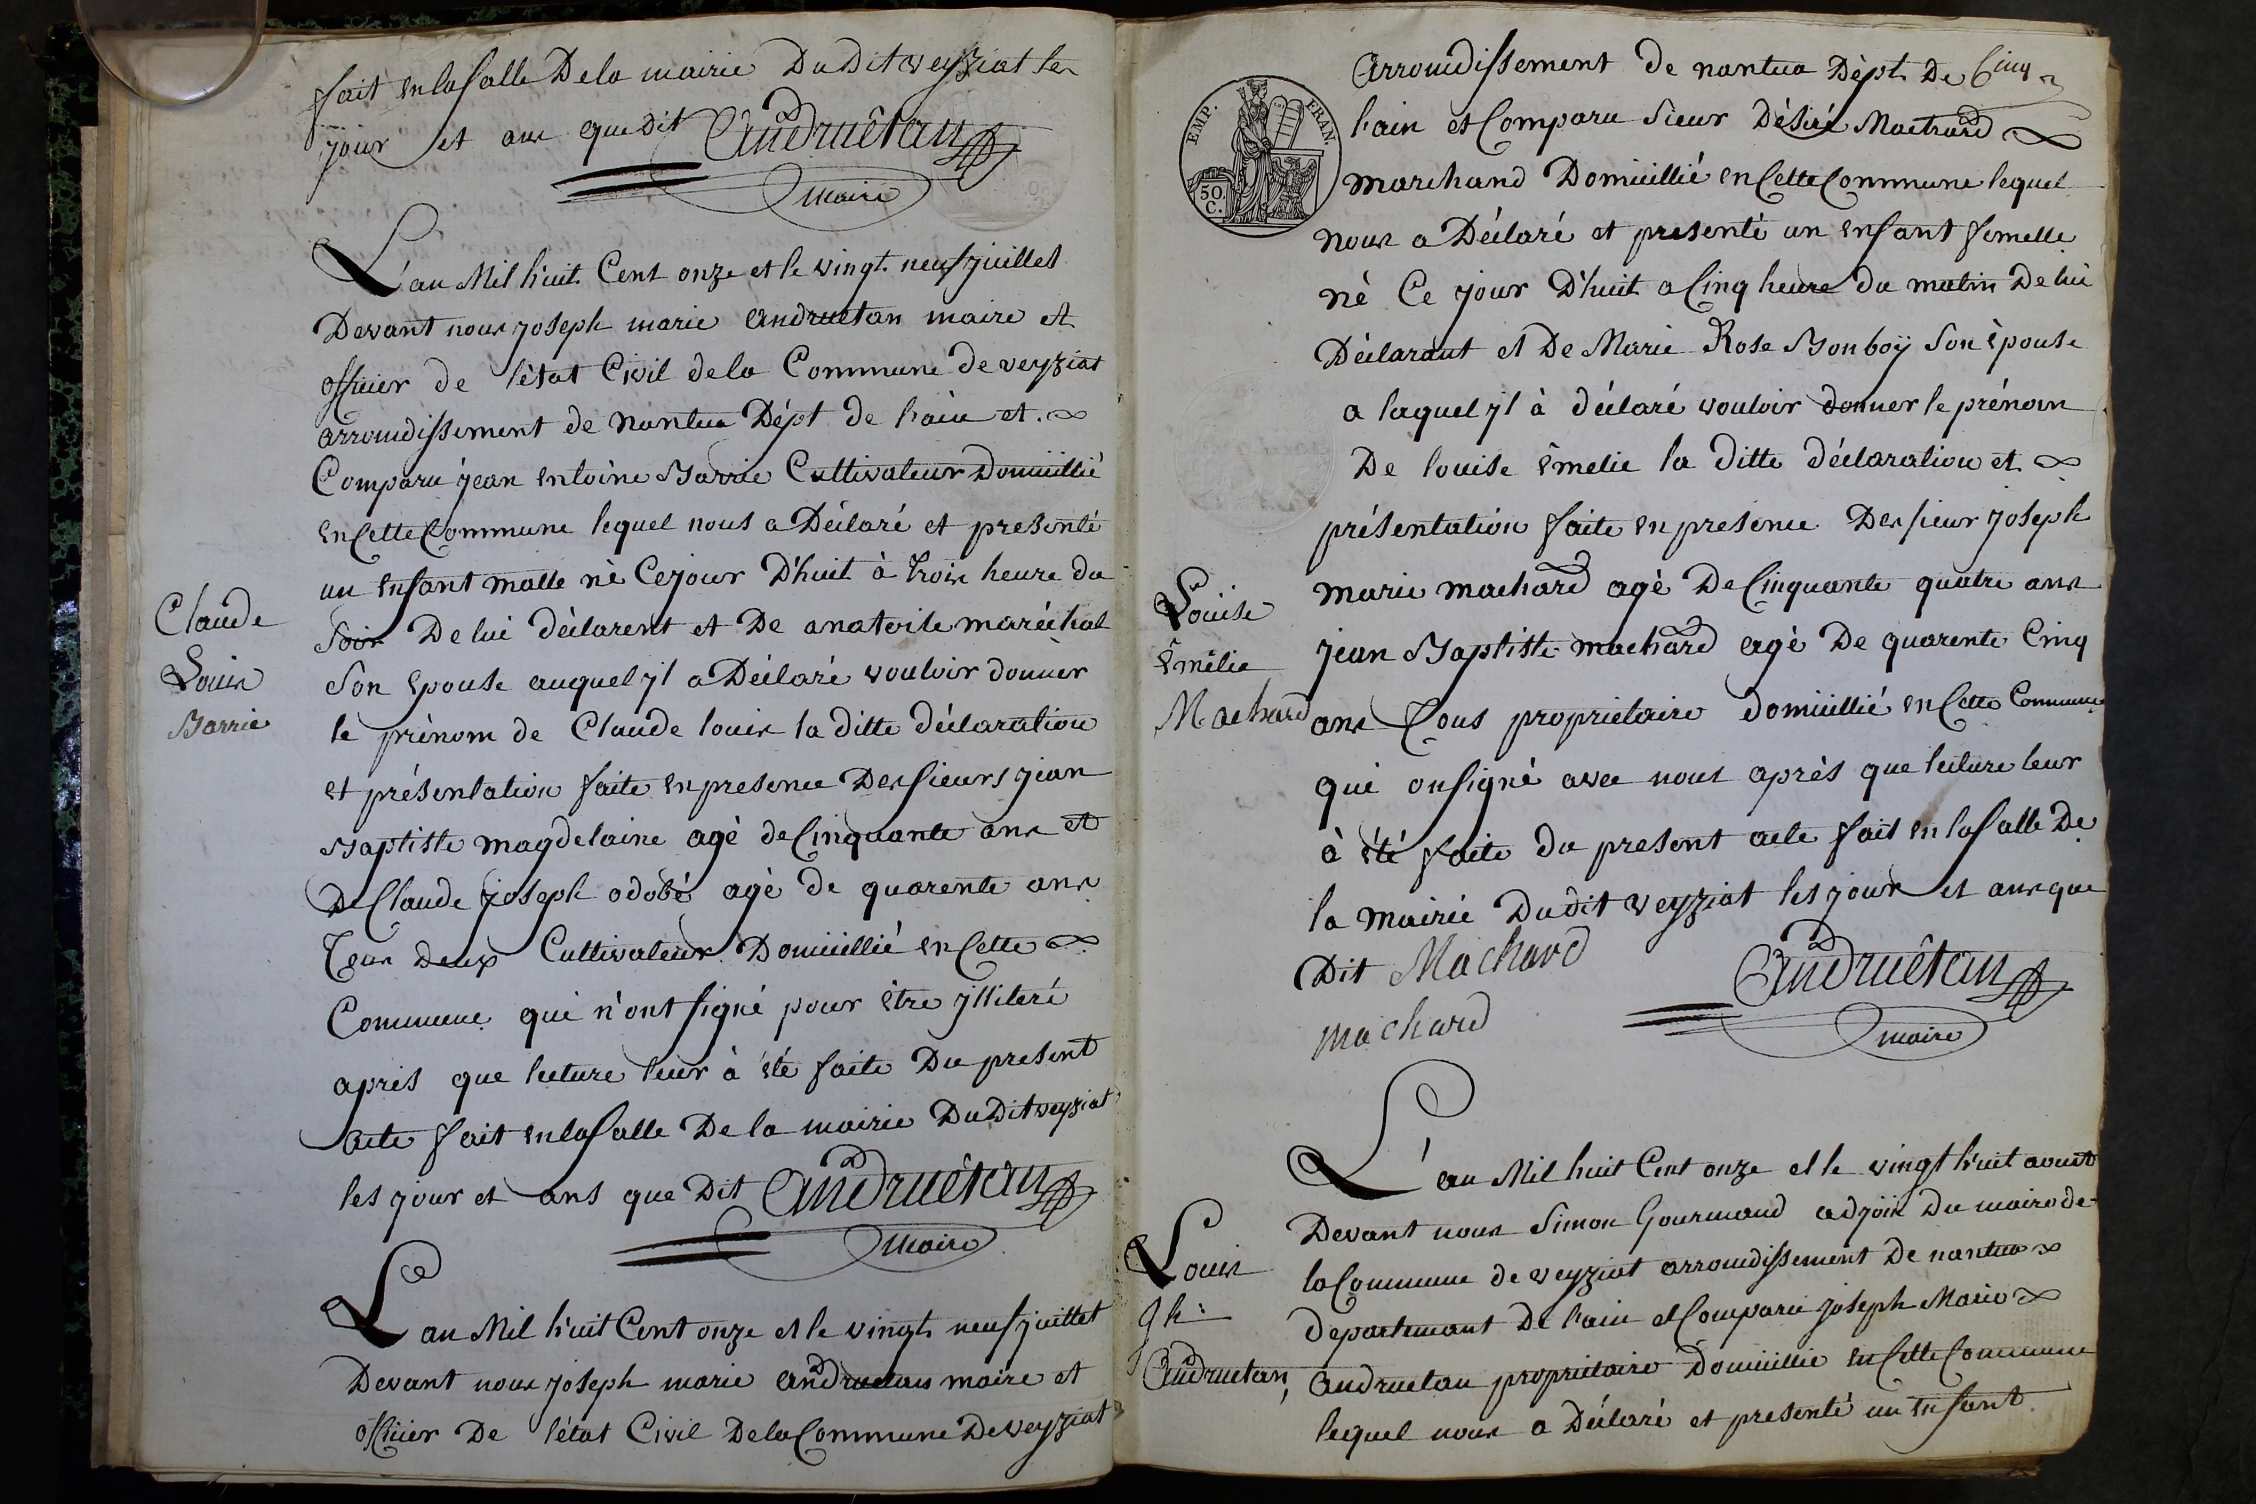 fait en la salle De la mairie Du Dit veyziat les
jour et ans que Dit Andruêtan
maire
L'an Mil huit Cent onze et le vingt neuf juillet
Devant nous joseph marie andruetan maire et
officier de l'état Civil de la Commune de veyziat
arroundissement de Nantua Dépt de l'ain et
Comparu jean entoine Barrie Cultivateur Domiillié
en Cette Commune lequel nous a Déilaré et presenté
un enfant malle nè Ce jour D'huit à trois heure du
Claude
Soir De lui déilarent et De anatoile maréchal
Louis
Son epouse auquel jl a Déilaré vouloir donner
Barrie
le prénom de Claude louis la ditte déilaration
et présentation faite en presence Des sieurs jean
Baptiste magdelaine agè de Cinquante ans et
De Claude joseph odobé agè de quarente ans
Tous deux Cultivateur Domiillié en Cette
Commune qui n'ont signé pour être jlliteré
aprés que lecture leur à été faite Du present
acte fait en la salle De la mairie Du Dit veyziat
les jour et ans que Dit Andruêtan
maire
L'an Mil huit Cent onze et le vingt neuf juillet
Devant nous joseph marie andruetan maire et
officier De l'état Civil De la Commune De veyziat
Cinq
Arroundissement de nantua Dépt. De
EMP. FRAN.
50.
C.
l'ain et Comparu Sieur Désiré Machard
marchand Domiillié en Cette Commune lequel
nous a Déilaré et presenté un enfant femelle
nè Ce jour D'huit a Cinq heure du matin De lui
Déilarant et De Marie Rose Bonboÿ Son èpouse
a laquel jl à déilaré vouloir donner le prénom
De louise émelie la ditte déilaration et
présentation faite en presence Des sieur joseph
marie machard agè De Cinquante quatre ans
Louise
émélie
jean Baptiste machard agè De quarente Cinq
Machard
ans Tous proprietaire domiillié en Cette Commune
qui on signé avec nous après que lecture leur
à été faite du present acte fait en la Salle De
la mairie Du dit veyziat les jour et ans que
Dit Machard Andruêtan
machard maire
L'an Mil huit Cent onze et le vingt huit aoust
Devant nous Simon Gourmand adjoin Du maire de
Louis
la Commune de veyziat arroundissement De nantua
jh:
departemant De l'ain et Comparu joseph Marie
Andruetan,
Andruetan proprietaire Domiillié en Cette Commune
lequel nous a Déilaré et presenté un enfant